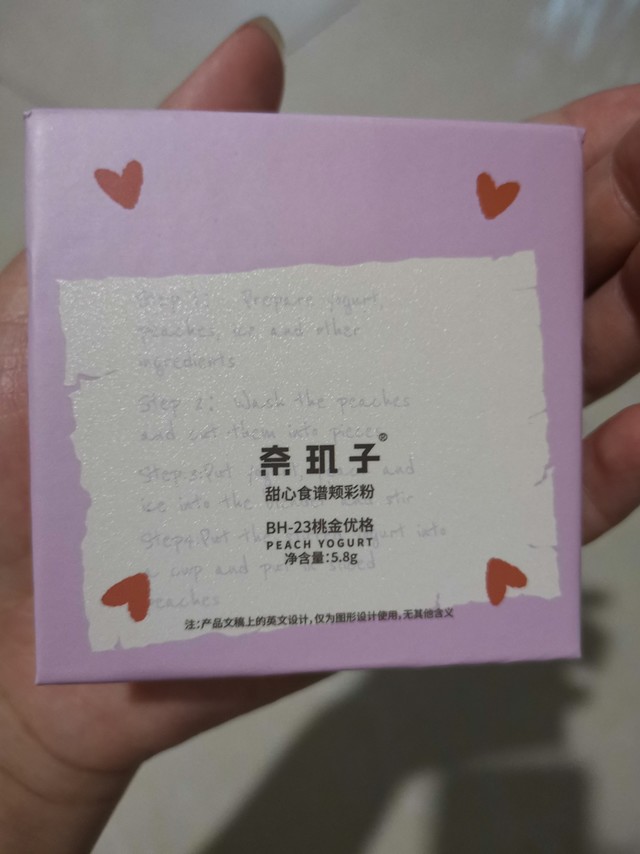 Step 1: Prepare yogurt,
peaches, ice and other
ingredients
Step 2: Wash the peaches
and cut them into pieces
奈玑子®
Step 3: Put and
甜心食谱颊彩粉
ice into the blender and stir
BH-23桃金优格
Step 4: Put the yogurt into
PEACH YOGURT
净含量:5.8g
a cup and put
peaches
注:产品文稿上的英文设计,仅为图形设计使用,无其他含义